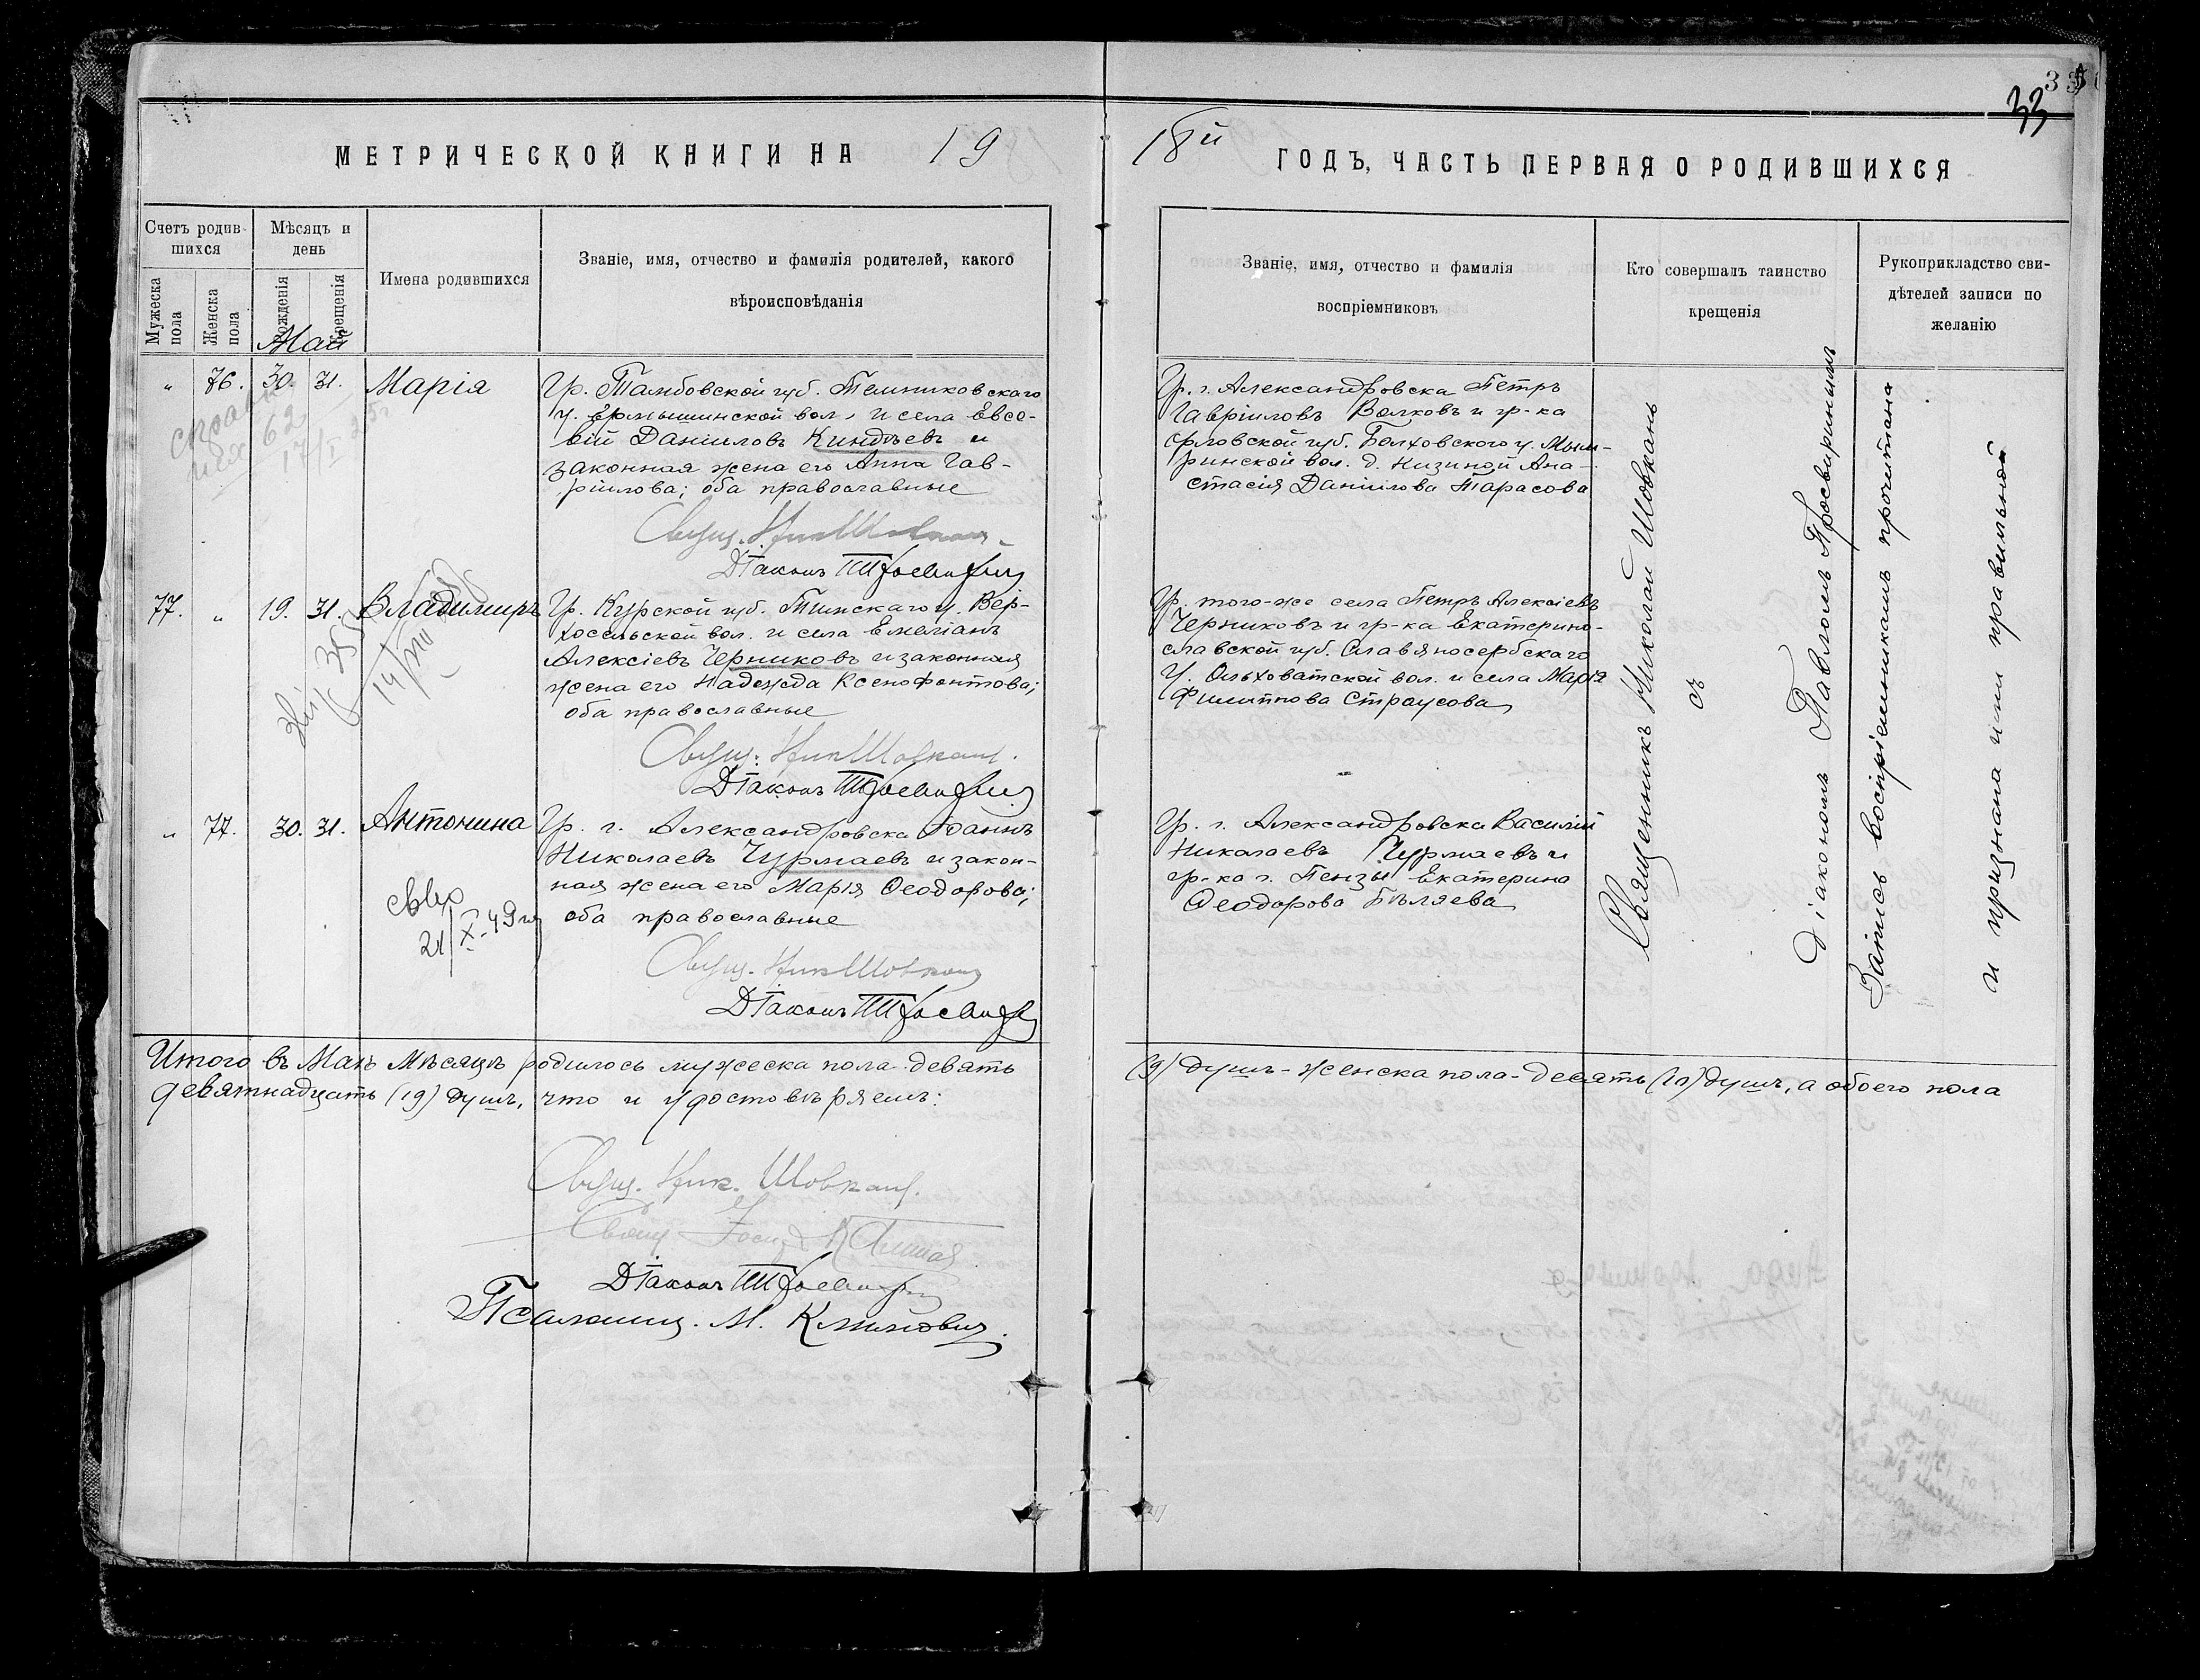 33
МЕТРИЧЕСКОЙ КНИГИ НА 19
18й ГОДЪ, ЧАСТЬ ПЕРВАЯ О РОДИВШИХСЯ
Счетъ родив-
шихся
Мужеска
пола
Женска
пола
Мѣсяцъ и
день
Рожденія
Крещенія
Май
Имена родившихся
Званіе, имя, отчество и фамилія родителей, какого
вѣроисповѣданія
Званіе, имя, отчество и фамилія
воспріемниковъ
Кто совершалъ таинство
крещенія
Рукоприкладство сви-
дѣтелей записи по
желанію
" 76. 30. 31. Марія
Гр. Тамбовской губ. Темниковскаго
у. Ермышинской вол. и села Евсе-
вій Даніиловъ Киндѣевъ и
законная жена его Анна Гав-
ріилова; оба православные
Свящ. Ник Шовкань
Діаконъ П Просвирнин
Гр. г. Александровска Петръ
Гавріиловъ Волковъ и гр-ка
Орловской губ. Болховского у. Мым-
ринской вол. д. Низиной Ана-
стасія Даніилова Тарасова
17/I
77. " 19. 31. Владимиръ
Гр. Курской губ. Тимскаго у. Вер-
хосельской вол. и села Емеліанъ
Алексіевъ Черниковъ и законная
жена его Надежда Ксенофонтова;
оба православные
Свящ. Ник Шовкань.
Діаконъ П Просвирнин
Гр. того-же села Петръ Алексіевъ
Черниковъ и гр-ка Екатерино-
славской губ. Славяносербскаго
у. Ольховатской вол. и села Марія
Филиппова Страусова
" 77. 30. 31. Антонина
Гр. г. Александровска Іоаннъ
Николаевъ Чурмаевъ и закон-
ная жена его Марія Ѳеодорова;
оба православные
21/X-49 г
Свящ. Ник Шовкань
Діаконъ П Просвирнин
Гр. г. Александровска Василій
Николаевъ Чурмаевъ и
гр-ка г. Пензы Екатерина
Ѳеодорова Бѣляева
Священникъ Николай Шовкань
съ
діакономъ Павломъ Просвирнинымъ
Запись воспріемникамъ прочитана
и признана ими правильной
Итого въ Маѣ мѣсяцѣ родилось мужеска пола - девять
(9) душъ - женска пола - десять (10) душъ, а обоего пола
девятнадцать (19) душъ, что и удостовѣряемъ:
Свящ. Ник. Шовкань.
Діаконъ П Просвирнин
Псаломщ. М. Климович.